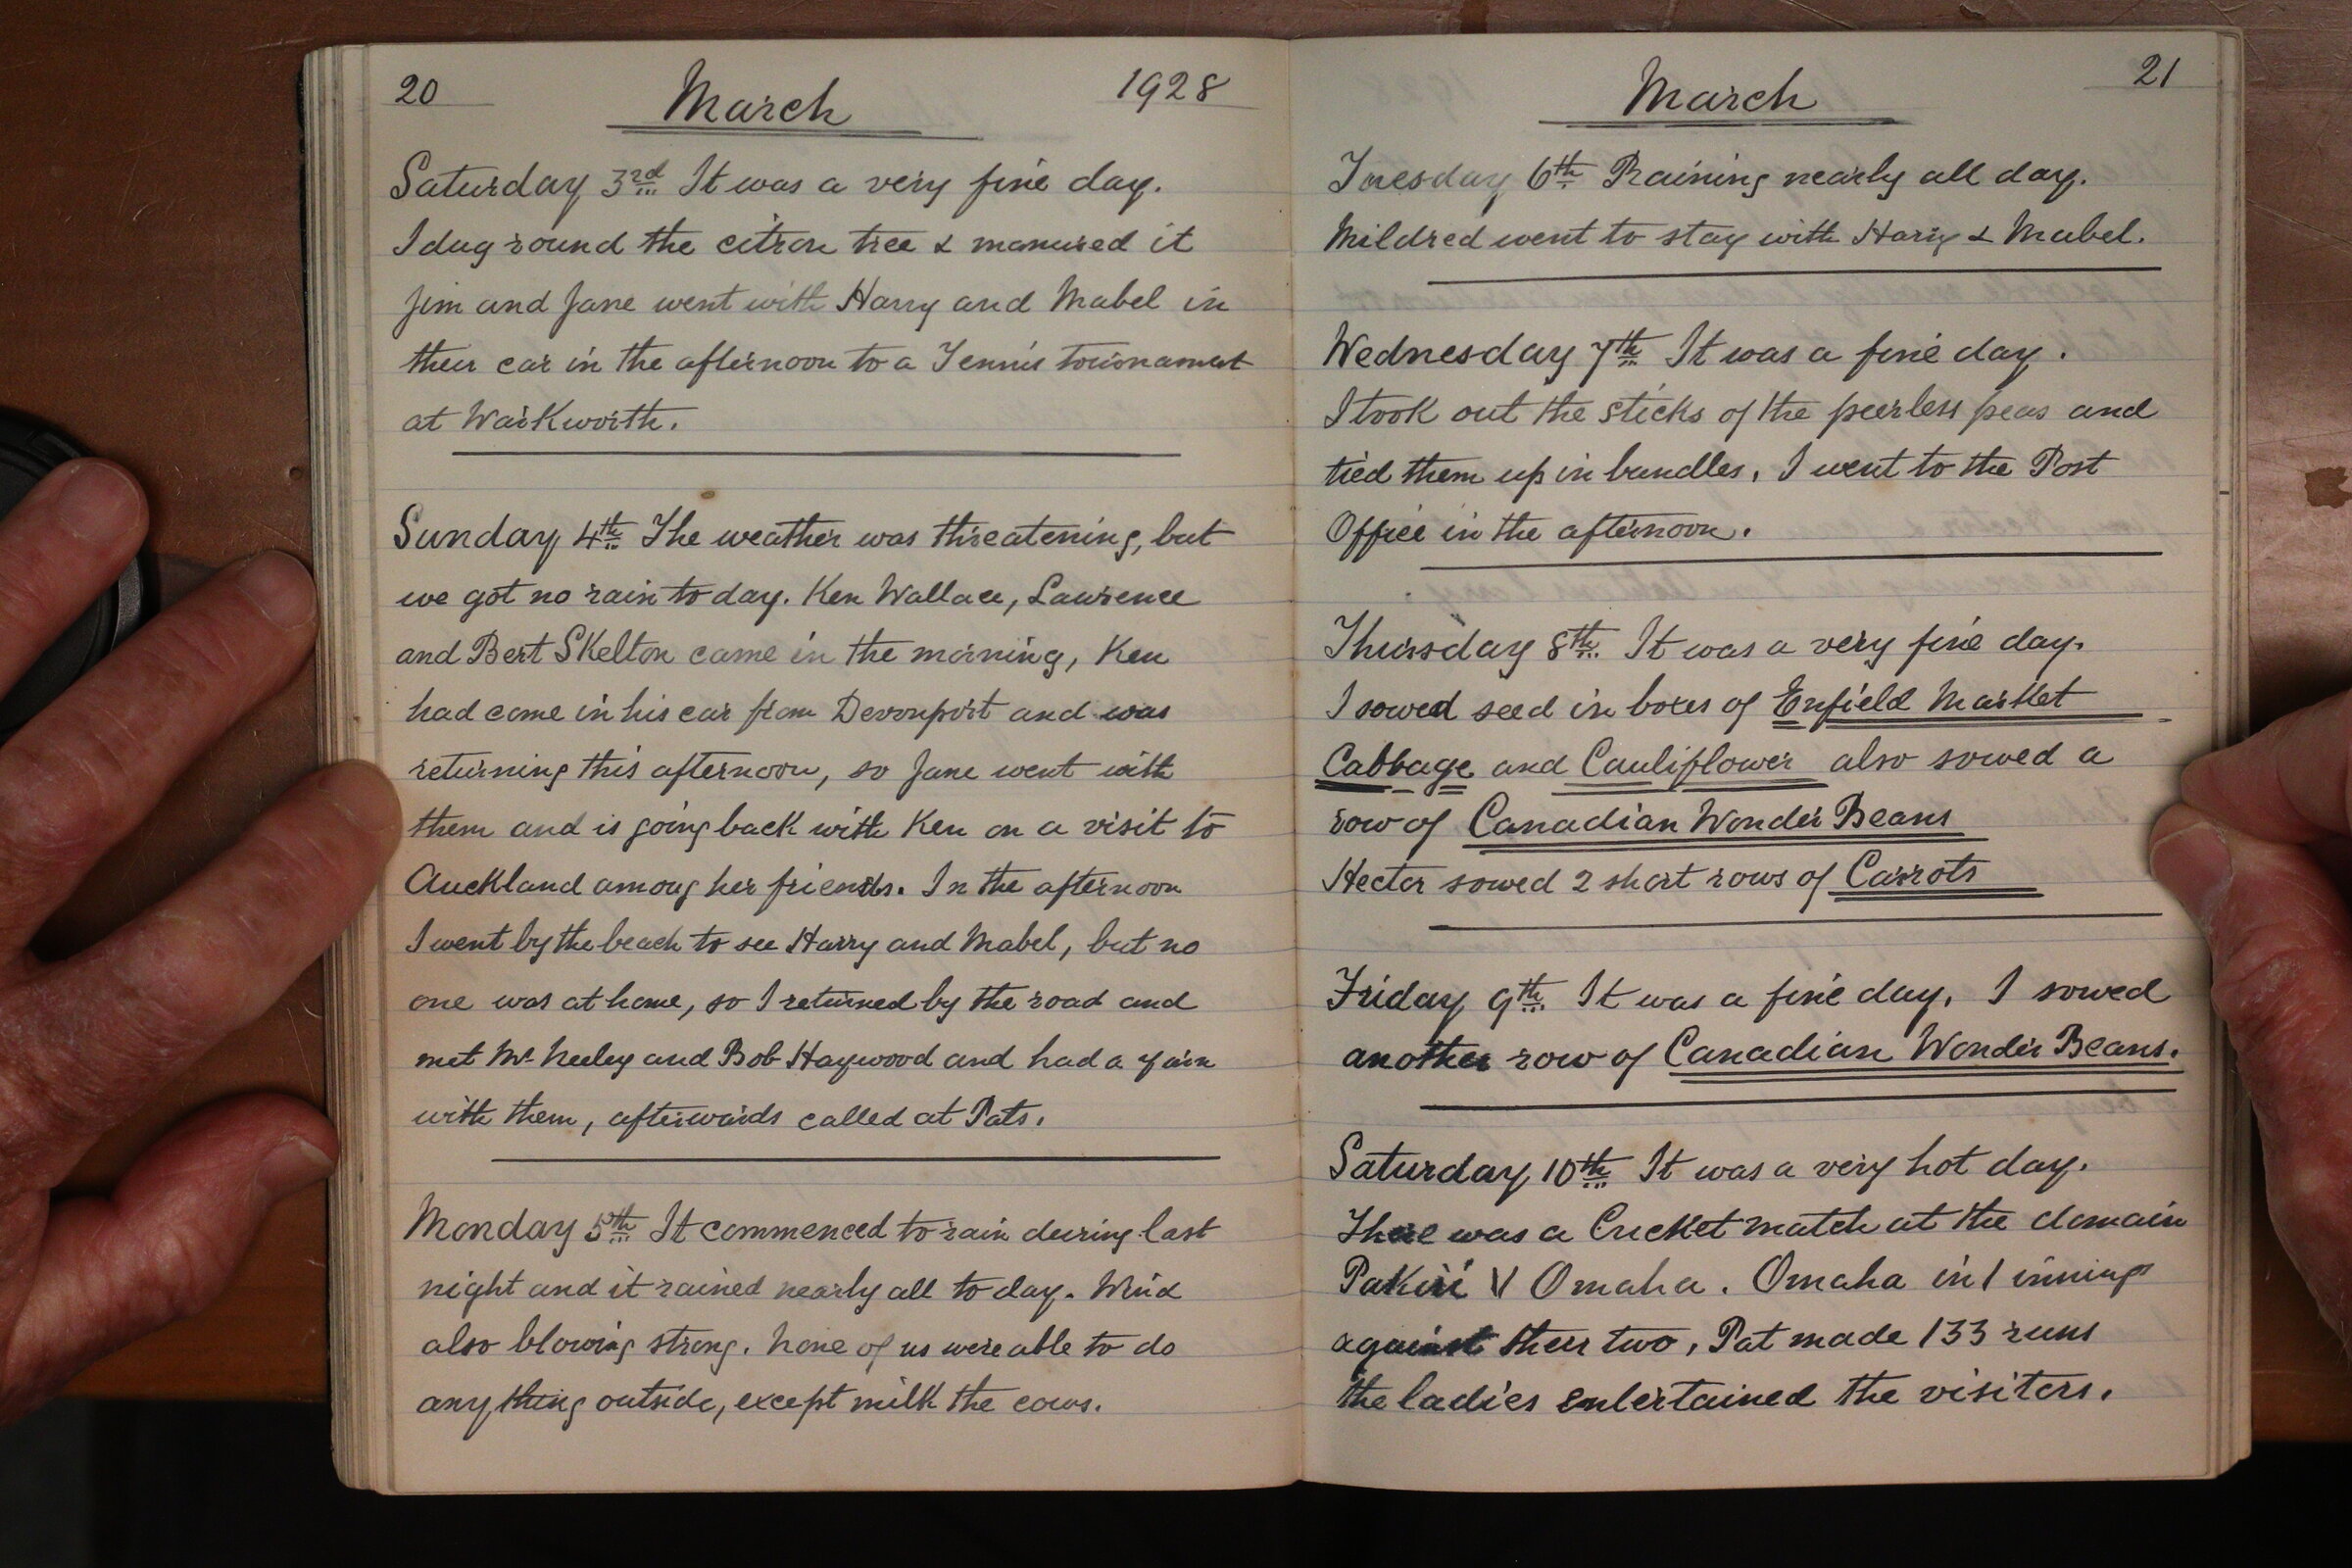 20 March 1928
Saturday 3rd It was a very fine day.
I dug round the citron tree & manured it
Jim and Jane went with Harry and Mabel in
their car in the afternoon to a Tennis tournament
at Warkworth.
Sunday 4th The weather was threatening, but
we got no rain to day. Ken Wallace, Lawrence
and Bert Skelton came in the morning, Ken
had come in his car from Devonport and was
returning this afternoon, so Jane went with
them and is going back with Ken on a visit to
Auckland among her friends. In the afternoon
I went by the beach to see Harry and Mabel, but no
one was at home, so I returned by the road and
met Mr Neeley and Bob Haywood and had a yarn
with them, afterwards called at Pats.
Monday 5th It commenced to rain during last
night and it rained nearly all to day. Wind
also blowing strong. None of us were able to do
anything outside, except milk the cows.
March 21
Tuesday 6th Raining nearly all day.
Mildred went to stay with Harry & Mabel.
Wednesday 7th It was a fine day.
I took out the sticks of the peerless peas and
tied them up in bundles, I went to the Post
Office in the afternoon.
Thursday 8th. It was a very fine day.
I sowed seed in boxes of Enfield Market
Cabbage and Cauliflower also sowed a
row of Canadian Wonder Beans
Hector sowed 2 short rows of Carrots
Friday 9th. It was a fine day, I sowed
another row of Canadian Wonder Beans.
Saturday 10th It was a very hot day.
There was a Cricket match at the domain
Pakiri V Omaha. Omaha in 1 innings
against their two, Pat made 133 runs
the ladies entertained the visitors.